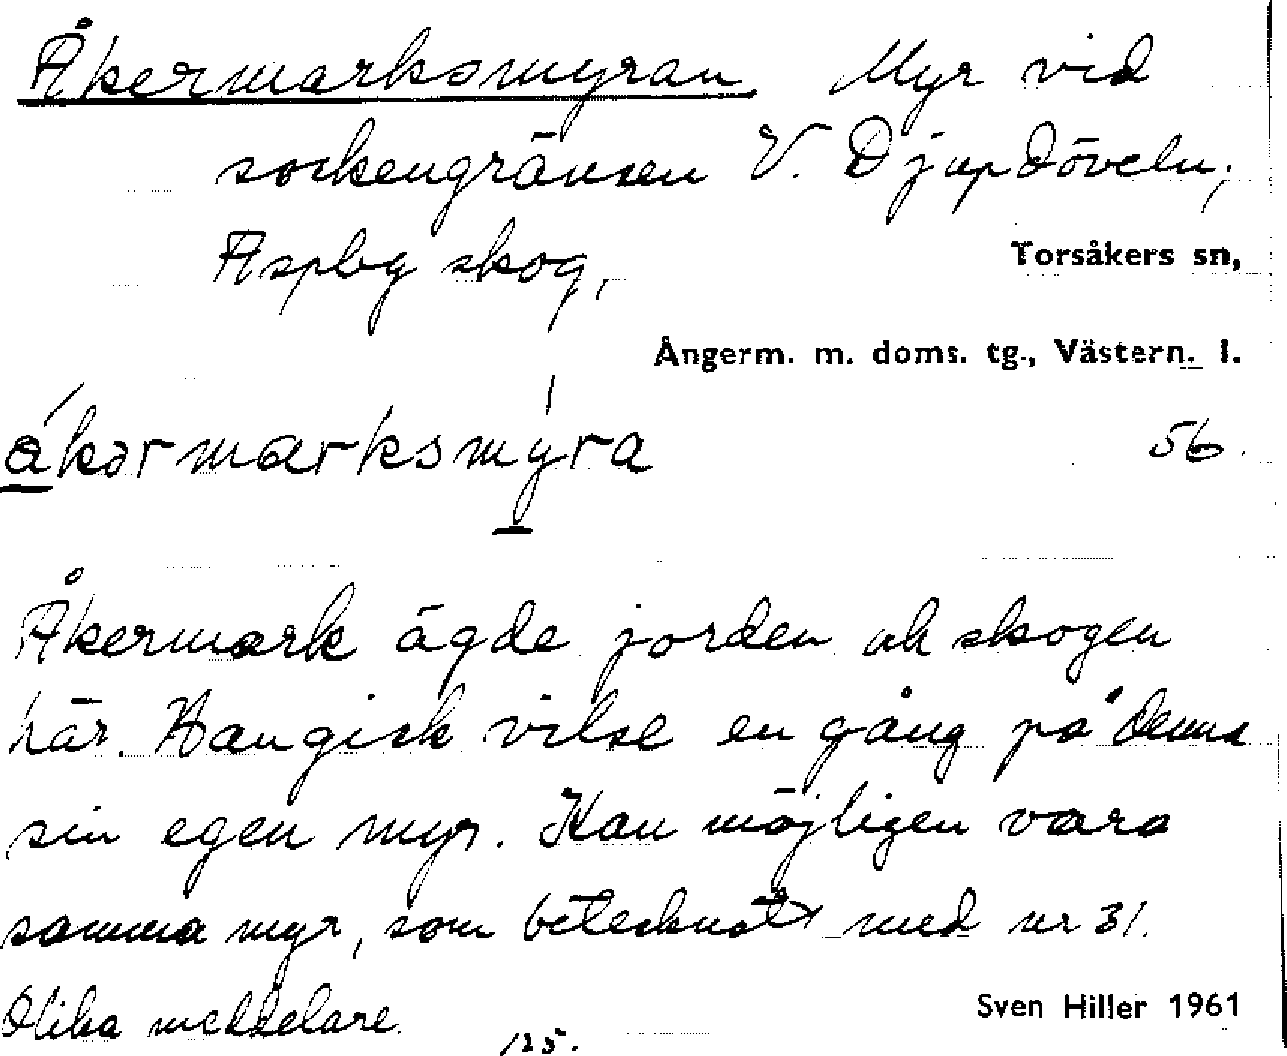 Åkermarksmyran Myr vid
sockengränsen V. Djupdöveln,
Aspby skog,
Torsåkers sn,
Ångerm. m. doms. tg., Västern. l.
åkərmarksmy̍ra 56.
Åkermark ägde jorden och skogen
här. Han gick vilse en gång på denna
sin egen myr. Kan möjligen vara
samma myr, som betecknats med nr 31.
Olika meddelare.
Sven Hiller 1961
125.